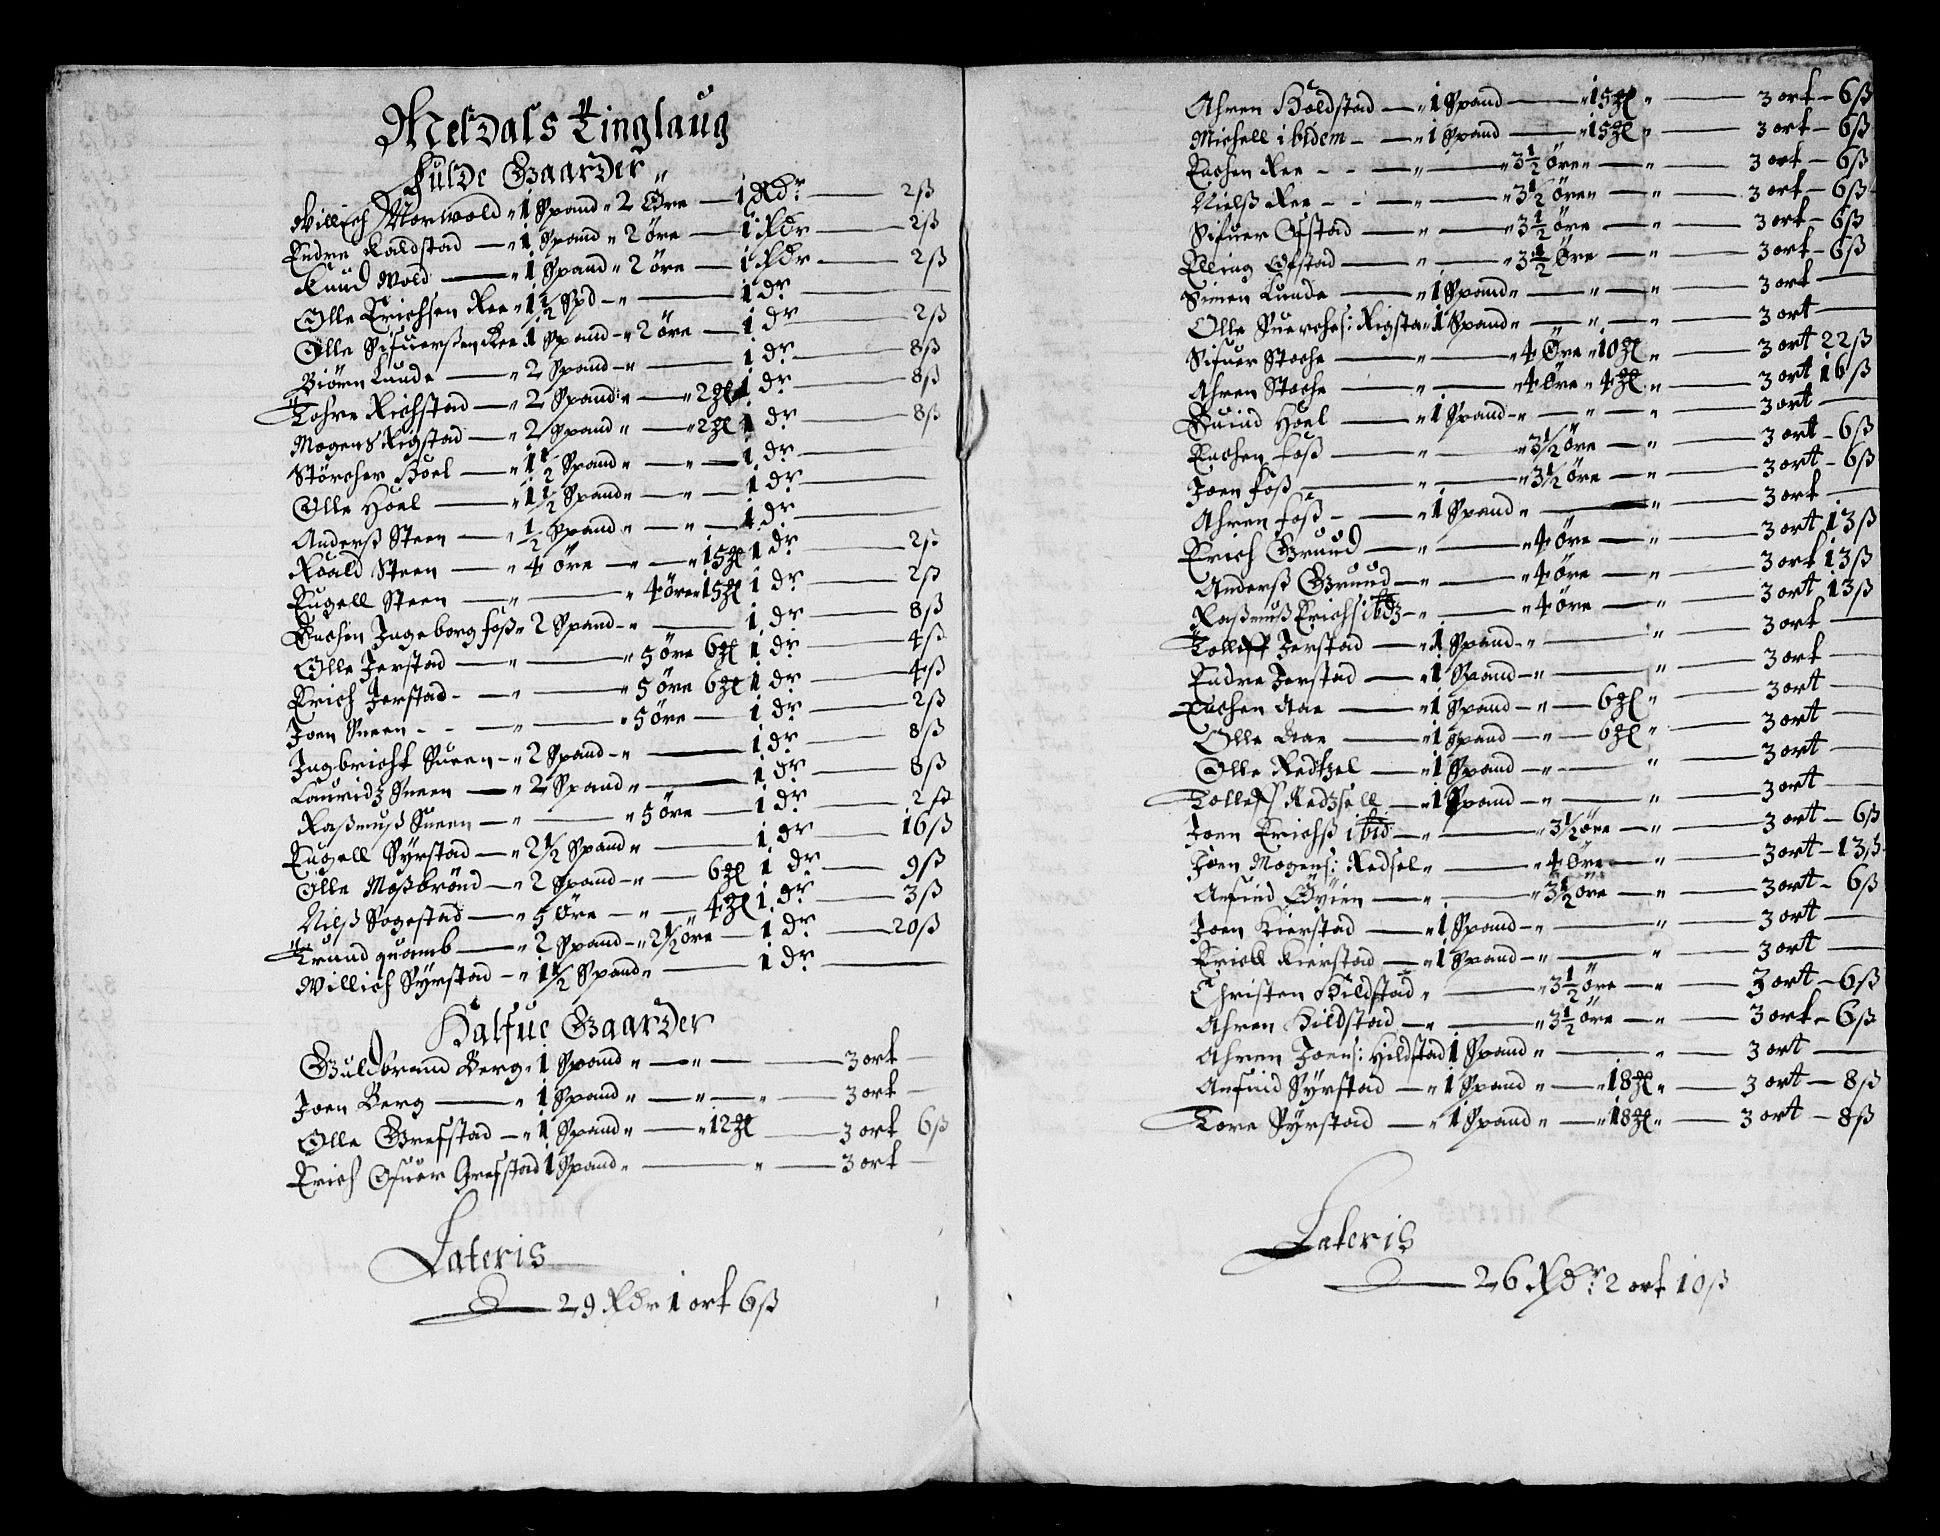 Meldals Tinglaug
Fulde Gaarder
Willich Morwold " 1 Spand " 2 Øre — 1 Rdr — 2 ß
Endre Kaldstad — " 1 Spand " 2 öre — 1 Rdr — 2 ß
Knud Wold — " 1 Spand " 2 öre — 1 Rdr — 2 ß
Olle Erichsen Ree " 1 1/2 Spd - " — 1 dr —
Olle Sifuersen Ree 1 Spand - " 2 öre — 1 dr — 2 ß
Biörn Lunde — " 2 Spand - " — 1 dr — 8 ß
Tohre Richstad — " 2 Spand " — " 2 ℔ 1 dr — 8 ß
Mogens Rigstad — " 2 Spand " — " 2 ℔ 1 dr — 8 ß
Störcher Hoel — " 1 1/2 Spand " — " — 1 dr —
Olle Hoel — " 1 1/2 Spand " — " — 1 dr —
Anderß Steen — " 1/2 Spand " — " — 1 dr —
Roald Steen — " 4 öre — " — " 15 ℔ 1 dr — 2 ß
Engell Steen — " — " 4 öre " 15 ℔ 1 dr — 2 ß
Enchen Ingeborg foß " 2 Spand - " — 1 dr — 8 ß
Olle Jerstad — " — " 5 öre 6 ℔ 1 dr — 4 ß
Erich Jerstad - — " — " 5 öre 6 ℔ 1 dr — 4 ß
Joen Sneen - - " — " 5 öre — 1 dr — 2 ß
Ingbricht Sneen - " 2 Spand - " — 1 dr — 8 ß
Lauridz Sneen — " 2 Spand " — 1 dr — 8 ß
Raßmuß Sneen — " — " 5 öre — 1 dr — 2 ß
Engell Syrstad — " 2 1/2 Spand " — 1 dr — 16 ß
Olle Moßbrönd — " 2 Spand - " — 6 ℔ 1 dr — 9 ß
Nilß Sogestad — " 5 öre — " — 4 ℔ 1 dr — 3 ß
Trund quamb — " 2 Spand - " 2 1/2 öre — 1 dr — 20 ß
Willich Syrstad — " 1 1/2 Spand " — 1 dr —
Halfue Gaarder
Guldbrand Berg " 1 Spand " — " — 3 ort —
Joen Berg — " 1 Spand " — " — " — 3 ort —
Olle Grefstad — " 1 Spand " — " 12 ℔ — 3 ort 6 ß
Erich Ofuer Grefstad 1 Spand " — " — 3 ort —
Lateris
— 29 Rdr 1 ort 6 ß
Ahren Holdstad — " 1 Spand — " 15 ℔ " — 3 ort — 6 ß
Michell ibidem - — " 1 Spand — " 15 ℔ " — 3 ort — 6 ß
Enchen Ree - - — " — " 3 1/2 öre " — " — 3 ort — 6 ß
Nielß Ree - - — " — " 3 1/2 öre " — " — 3 ort — 6 ß
Sifuer Ofstad — " — " 3 1/2 öre — " — 3 ort — 6 ß
Elling Ofstad — " — " 3 1/2 Öre — " — 3 ort — 6 ß
Simen Lunde — " 1 Spand " — " — " — 3 ort —
Olle Snerches: Rigsta " 1 Spand " — " — " — 3 ort —
Sifuer Stoche — " — " 4 Öre " 10 ℔ " — 3 ort 22 ß
Ahren Stoche — " — " 4 öre " 4 ℔ " — 3 ort 16 ß
Suind Hoel — " 1 Spand - " — " — " — 3 ort —
Enchen foß — " — " 3 1/2 öre — " — 3 ort — 6 ß
Joen foß — " — " 3 1/2 öre — " — 3 ort — 6 ß
Ahren foß - — " 1 Spand " — " — 3 ort —
Erich Grund — " — " 4 öre — " — 3 ort 13 ß
Anderß Grund — " — " 4 öre — " — 3 ort 13 ß
Raßmuß Erichs ibdz - " — " 4 öre — " — 3 ort 13 ß
Tolleff Jerstad — " 1 Spand - " — " — 3 ort —
Endre Jerstad — " 1 Spand - " — " — 3 ort —
Enchen Aae — " 1 Spand - " — 6 ℔ " — 3 ort —
Olle Aae — " 1 Spand — " — 6 ℔ " — 3 ort —
Olle Redtzel — " 1 Spand — " — " — 3 ort —
Tolleff Redzell — " 1 Spand — " — " — 3 ort —
Joen Erichß ibid - " — " 3 1/2 öre — " — 3 ort — 6 ß
Joen Mogens: Redsel " — " 4 öre — " — 3 ort — 13 ß
Anfind Öyien — " — " 3 1/2 öre — " — 3 ort — 6 ß
Joen Kierstad — " 1 Spand - " — " — 3 ort —
Erich Kierstad — " 1 Spand - " — " — 3 ort —
Christen Hildstad " — " 3 1/2 öre — " — 3 ort — 6 ß
Ahren Hildstad — " — " 3 1/2 öre — " — 3 ort - 6 ß
Ahren Joens: Hildstad 1 Spand " — " — 3 ort —
Anfind Syrstad — " 1 Spand " — " 18 ℔ " — 3 ort — 8 ß
Tore Syrstad — " 1 Spand " — " 18 ℔ " — 3 ort — 8 ß
Lateris
— 26 Rdr: 2 ort 10 ß